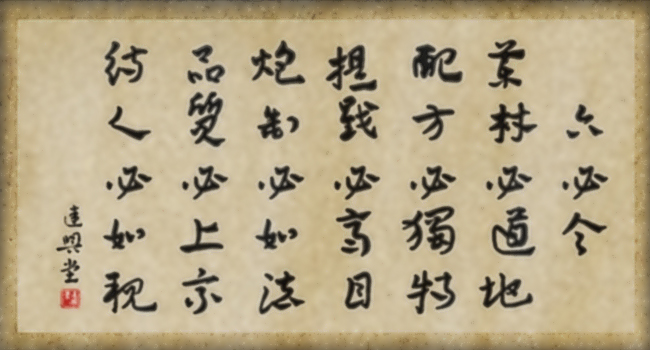 六必令
藥材必道地
配方必獨特
提戥必齊眉
炮制必如法
品質必上乘
待人必如親
興堂